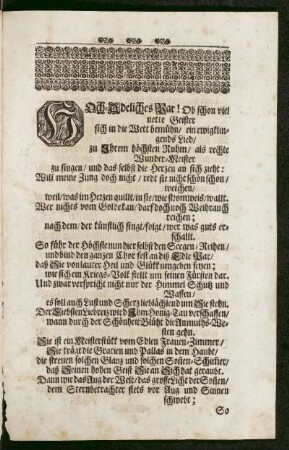 Hoch-Adeliches Par! Ob schon viel
nette Geister
sich in die Wett bemühn / ein ewigklin-
gends Lied /
zu Ihrem höchsten Ruhm / als rechte
Wunder-Meister
zu singen / und das selbst die Herzen an sich zieht:
Will meine Zung doch nicht / redt sie nicht schön schon /
weichen /
weil / was im Herzen quillt / in sie / wie stromweis / wallt.
Wer nichts vom Gold kan / darf doch noch Weihrauch
reichen;
nach dem / der künstlich singt / folgt / wer was guts er-
schallt.
So führ der Höchste nun hier selbst den Seegen-Reihen /
und bind den ganzen Chor fest an diß Edle Par /
daß Sie von lauter Heil und Glück umgeben seyen;
wie sich ein Kriegs-Volk stellt um seinen Fürsten dar.
Und zwar verspricht nicht nur der Himmel Schutz und
Waffen /
es soll auch Lust und Scherz lieblächlend um Sie stehn.
Der Liebsten Liebreiz wird Ihm Honig-Tau verschaffen /
wann durch der Schönheit Blüht die Anmuths-We-
sten gehn.
Sie ist ein Meisterstück vom Edlen Frauen-Zimmer /
Sie trägt die Gratien und Pallas in dem Haubt /
die streuen solchen Glanz und solchen Sonnen-Schimer /
daß Seinen hohen Geist Sie an Sich hat geraubt.
Dann wie das Aug der Welt / das grosse Liecht der Sonnen /
dem Sternbetrachter stets vor Aug und Sinnen
schwebt;
So